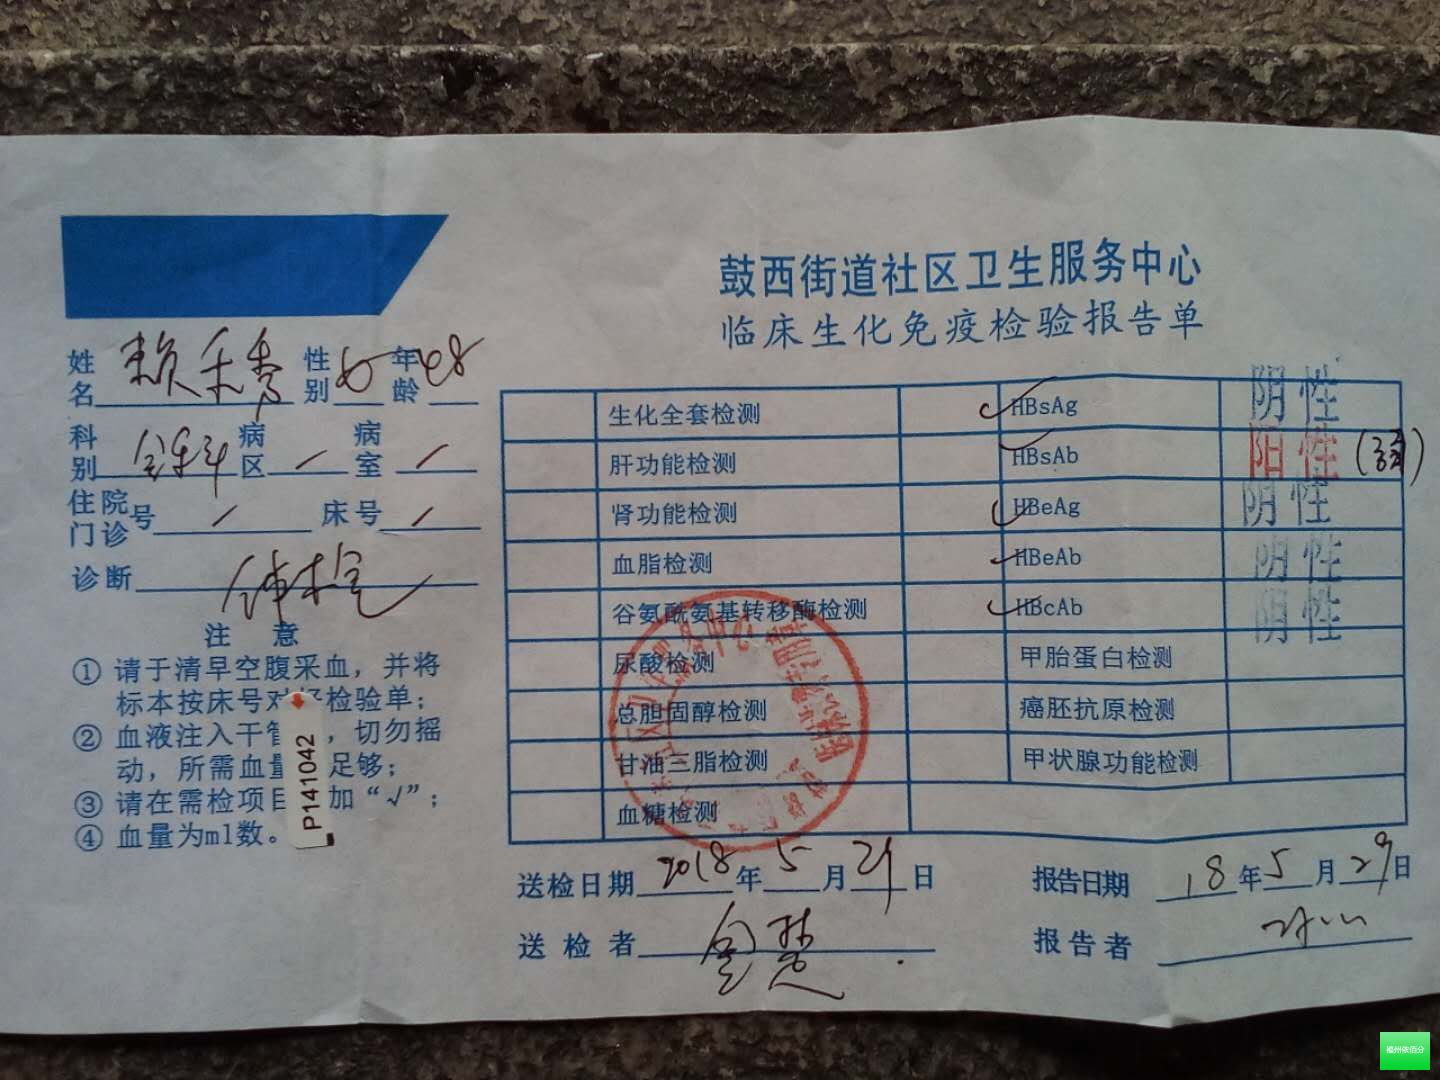 鼓西街道社区卫生服务中心
临床生化免疫检验报告单
姓名 赖禾秀 性别 女 年龄 48
科别 全科 病区 / 病室 /
住院门诊号 / 床号 /
诊断 体检
注 意
① 请于清早空腹采血，并将
标本按床号对 检验单；
② 血液注入干管 ，切勿摇
动，所需血量 足够；
③ 请在需检项目 加“√”；
④ 血量为ml数。
P141042
生化全套检测 √ HBsAg 阴性
肝功能检测 √ HBsAb 阳性 (弱)
肾功能检测 √ HBeAg 阴性
血脂检测 √ HBeAb 阴性
谷氨酰氨基转移酶检测 √ HBcAb 阴性
尿酸检测 甲胎蛋白检测
总胆固醇检测 癌胚抗原检测
甘油三脂检测 甲状腺功能检测
血糖检测
送检日期 2018 年 5 月 29 日 报告日期 18 年 5 月 29 日
送检者 报告者
福州依佰分